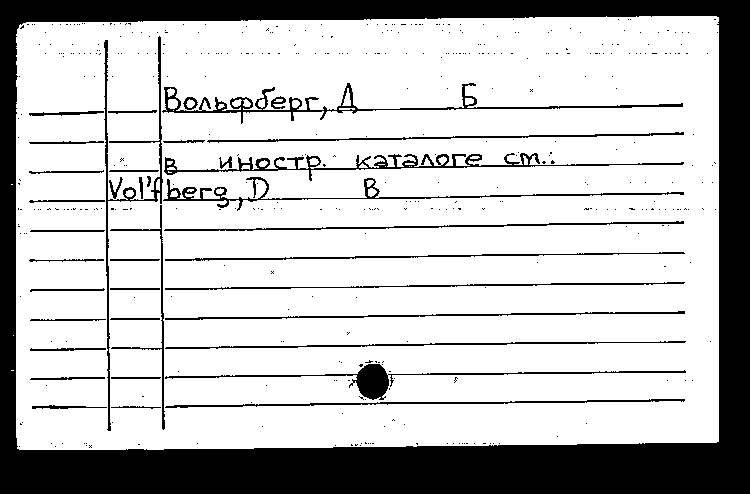 Вольфберг, Д Б
в иностр. каталоге ст.:
Vol'fberg, D B